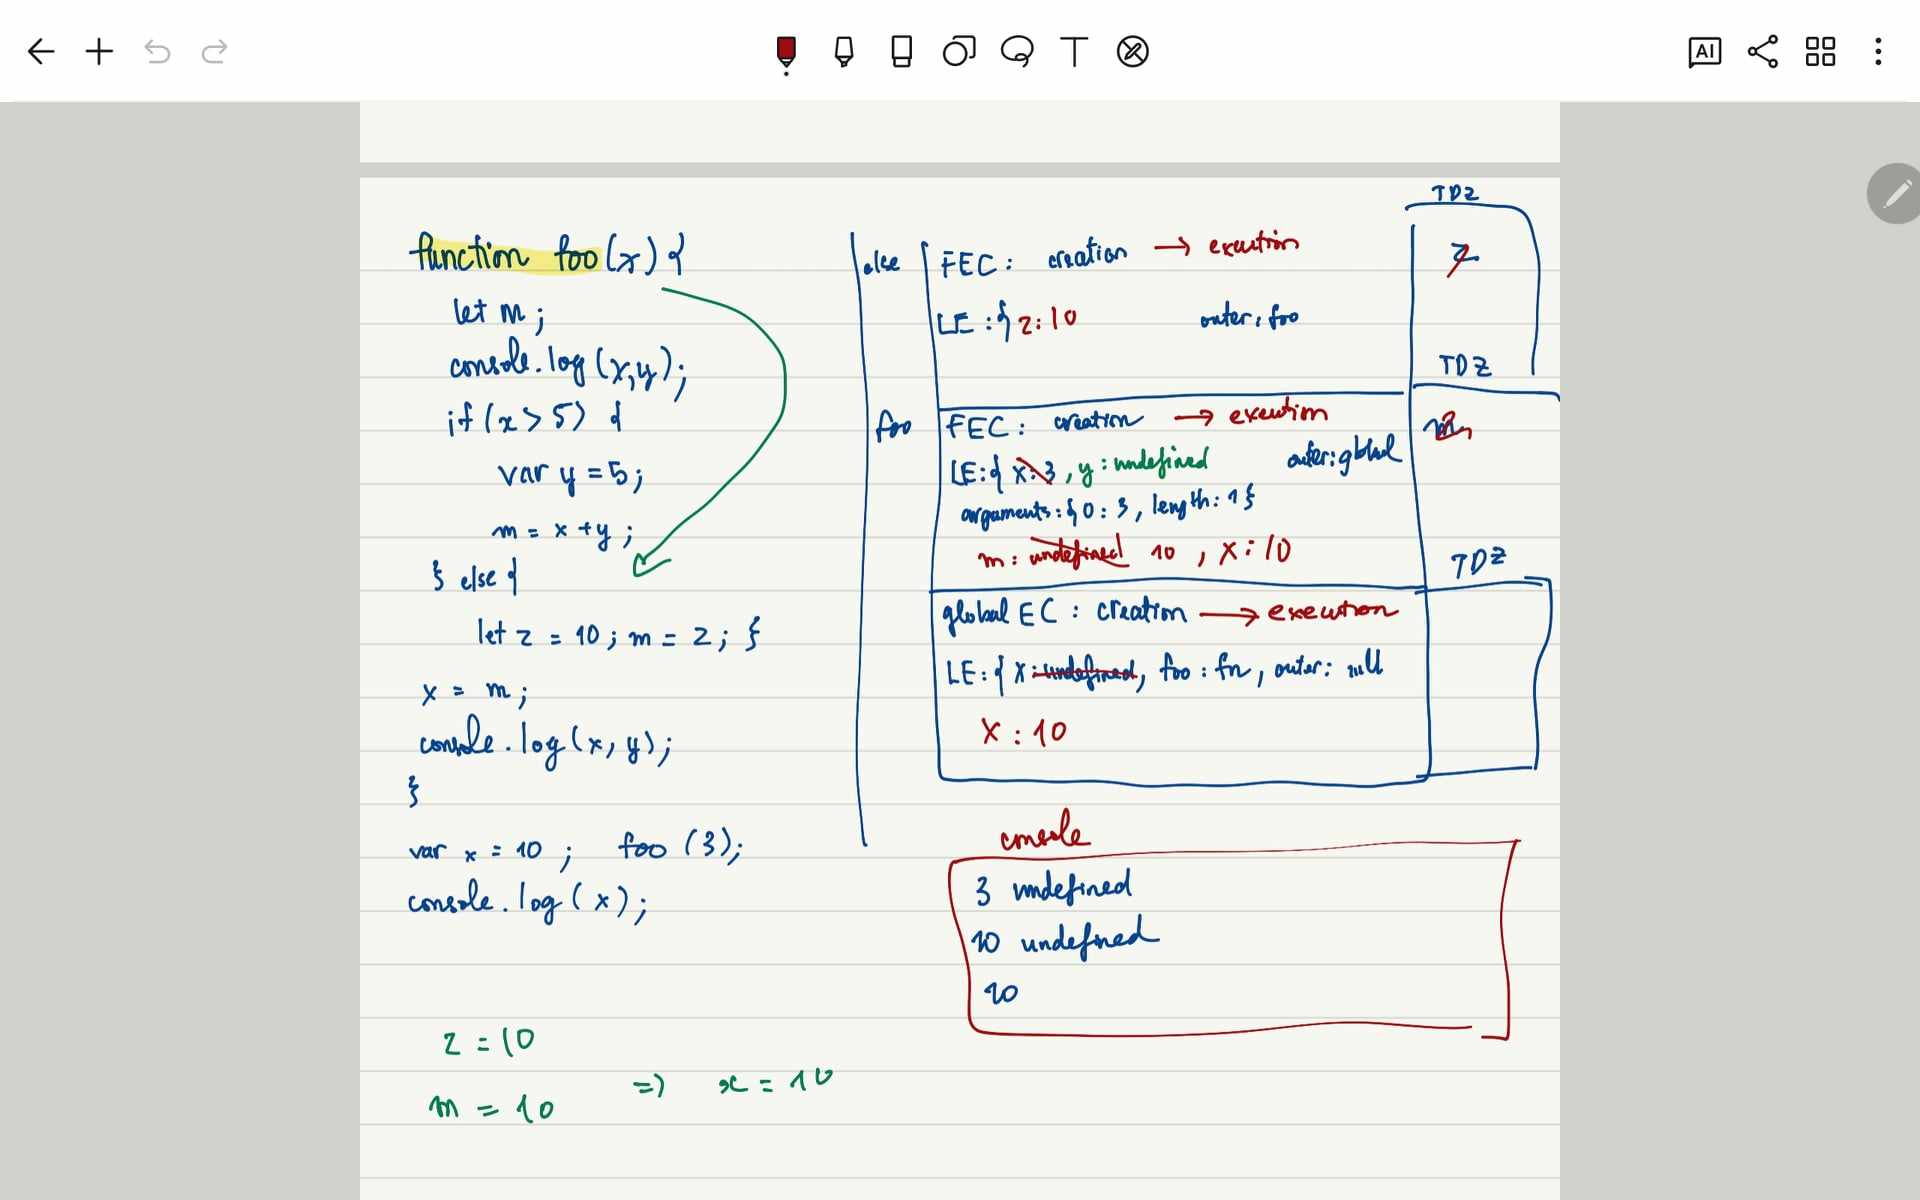 AI
function foo(x){
let m;
console.log(x,y);
if(x>5) {
var y = 5;
m = x + y;
} else {
let z = 10; m = z; }
x = m;
console.log(x, y);
}
var x = 10; foo (3);
console.log(x);
z = 10
m = 10 => x = 10
TDZ
else FEC: creation → execution z
LE:{ z:10 outer: foo
TDZ
foo FEC: creation → execution m
LE:{ x:3, y: undefined outer: global
arguments:{0:3, length:1}
m: undefined 10, x:10
TDZ
global EC: creation → execution
LE:{ x:undefined, foo: fn, outer: null
x:10
console
3 undefined
10 undefined
10